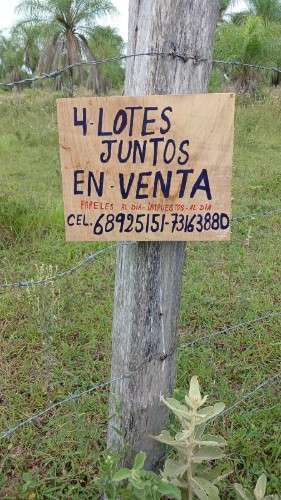 4-LOTES
JUNTOS
EN-VENTA
PAPELES AL DIA-IMPUESTOS-AL DIA
CEL-68925151-73163880